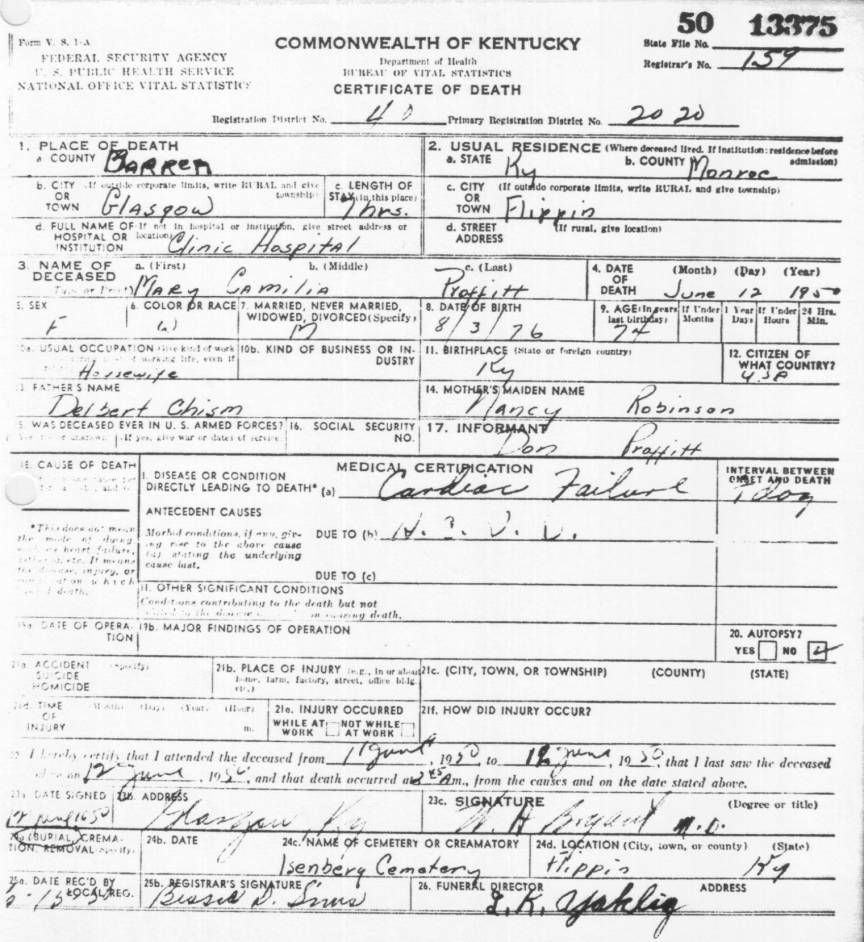 50 13375
Form V. S. 1-A
COMMONWEALTH OF KENTUCKY
State File No.
FEDERAL SECURITY AGENCY
Department of Health
Registrar's No. 159
U. S. PUBLIC HEALTH SERVICE
BUREAU OF VITAL STATISTICS
NATIONAL OFFICE VITAL STATISTICS
CERTIFICATE OF DEATH
Registration District No. 40 Primary Registration District No. 2020
1. PLACE OF DEATH
a COUNTY Barren
2. USUAL RESIDENCE (Where deceased lived. If institution: residence before admission)
a. STATE Ky b. COUNTY Monroe
b. CITY (If outside corporate limits, write RURAL and give township)
OR
TOWN Glasgow
c. LENGTH OF STAY (in this place)
7hrs.
c. CITY (If outside corporate limits, write RURAL and give township)
OR
TOWN Flippin
d. FULL NAME OF (If not in hospital or institution, give street address or location)
HOSPITAL OR
INSTITUTION Clinic Hospital
d. STREET (If rural, give location)
ADDRESS
3. NAME OF DECEASED a. (First) b. (Middle) c. (Last)
(Type or Print) Mary Camilia Proffitt
4. DATE OF DEATH (Month) (Day) (Year)
June 12 1950
5. SEX
F
6. COLOR OR RACE
7. MARRIED, NEVER MARRIED, WIDOWED, DIVORCED (Specify)
M
8. DATE OF BIRTH
8/3/76
9. AGE (In years last birthday) If Under 1 Year If Under 24 Hrs.
Months Days Hours Min.
74
10a. USUAL OCCUPATION (Give kind of work
working life, even if
Housewife
10b. KIND OF BUSINESS OR INDUSTRY
11. BIRTHPLACE (State or foreign country)
Ky
12. CITIZEN OF WHAT COUNTRY?
13. FATHER'S NAME
Delbert Chism
14. MOTHER'S MAIDEN NAME
Nancy Robinson
15. WAS DECEASED EVER IN U. S. ARMED FORCES?
(If yes, give war or dates of service)
16. SOCIAL SECURITY NO.
17. INFORMANT
Don Proffitt
18. CAUSE OF DEATH
MEDICAL CERTIFICATION
INTERVAL BETWEEN ONSET AND DEATH
I. DISEASE OR CONDITION
DIRECTLY LEADING TO DEATH* (a) Cardiac Failure 1 day
ANTECEDENT CAUSES
*This does not mean the mode of dying, such as heart failure, etc. It means the disease, injury, or which death.
Morbid conditions, if any, giving rise to the above cause (a) stating the underlying cause last.
DUE TO (b)
DUE TO (c)
II. OTHER SIGNIFICANT CONDITIONS
Conditions contributing to the death but not
causing death.
19a. DATE OF OPERATION
19b. MAJOR FINDINGS OF OPERATION
20. AUTOPSY?
YES NO
21a. ACCIDENT (Specify)
SUICIDE
HOMICIDE
21b. PLACE OF INJURY (e.g., in or about home, farm, factory, street, office bldg., etc.)
21c. (CITY, TOWN, OR TOWNSHIP) (COUNTY) (STATE)
21d. TIME (Month) (Day) (Year) (Hour)
OF
INJURY m.
21e. INJURY OCCURRED
WHILE AT WORK NOT WHILE AT WORK
21f. HOW DID INJURY OCCUR?
22. I hereby certify that I attended the deceased from 11 June, 1950, to 12 June, 1950, that I last saw the deceased
alive on 12 June, 1950, and that death occurred at m., from the causes and on the date stated above.
23a. DATE SIGNED
23b. ADDRESS
Glasgow Ky
23c. SIGNATURE (Degree or title)
W H Bryant M.D.
24a. BURIAL, CREMATION, REMOVAL (Specify)
24b. DATE
24c. NAME OF CEMETERY OR CREAMATORY
Isenberg Cemetery
24d. LOCATION (City, town, or county) (State)
Flippin Ky
25a. DATE REC'D BY LOCAL REG.
25b. REGISTRAR'S SIGNATURE
Bessie D. Sims
26. FUNERAL DIRECTOR ADDRESS